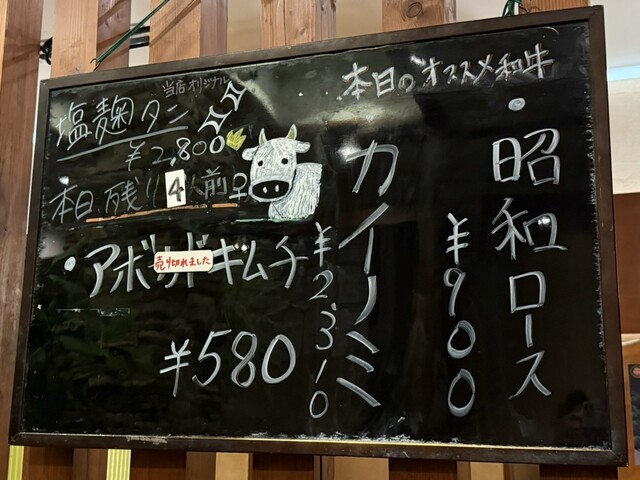 本日のオススメ和牛
・昭和ロース
¥900
カイノミ
¥2,310
当店オリジナル
塩麹タン
¥2,800
本日残り4人前
・アボカドギムチ
売り切れました
¥580